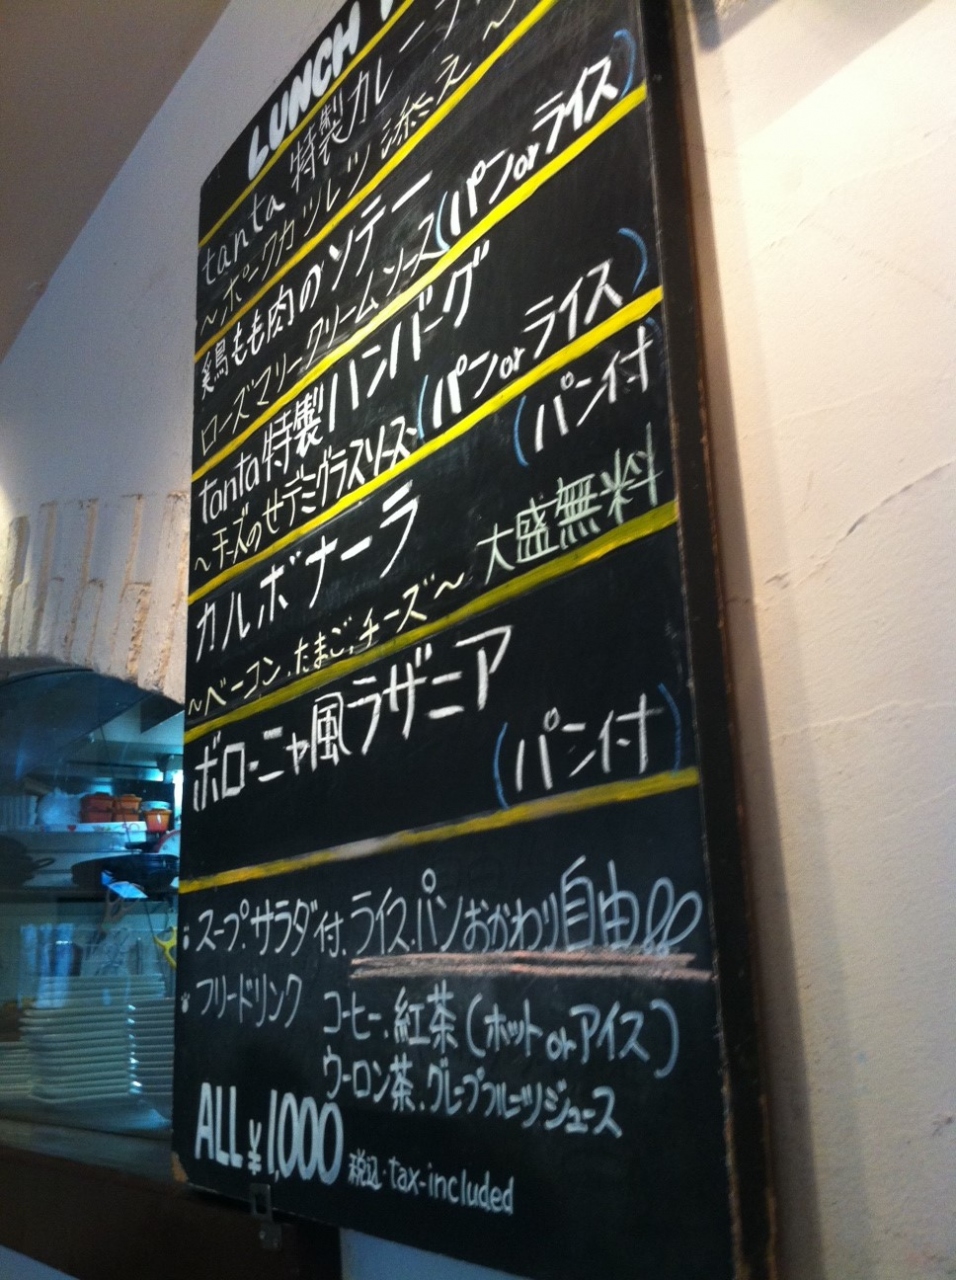 LUNCH
tanta 特製カレー
～ポークカツレツ添え～
鶏もも肉のソテー
ローズマリークリームソース(パンorライス)
tanta特製ハンバーグ
～チーズのせデミグラスソース(パンorライス)
カルボナーラ (パン付)
～ベーコン.たまご.チーズ～ 大盛無料
ボローニャ風ラザニア
(パン付)
スープ.サラダ付.ライス.パンおかわり自由
フリードリンク コーヒー.紅茶(ホットorアイス)
ウーロン茶.グレープフルーツジュース
ALL ¥1,000 税込・tax-included